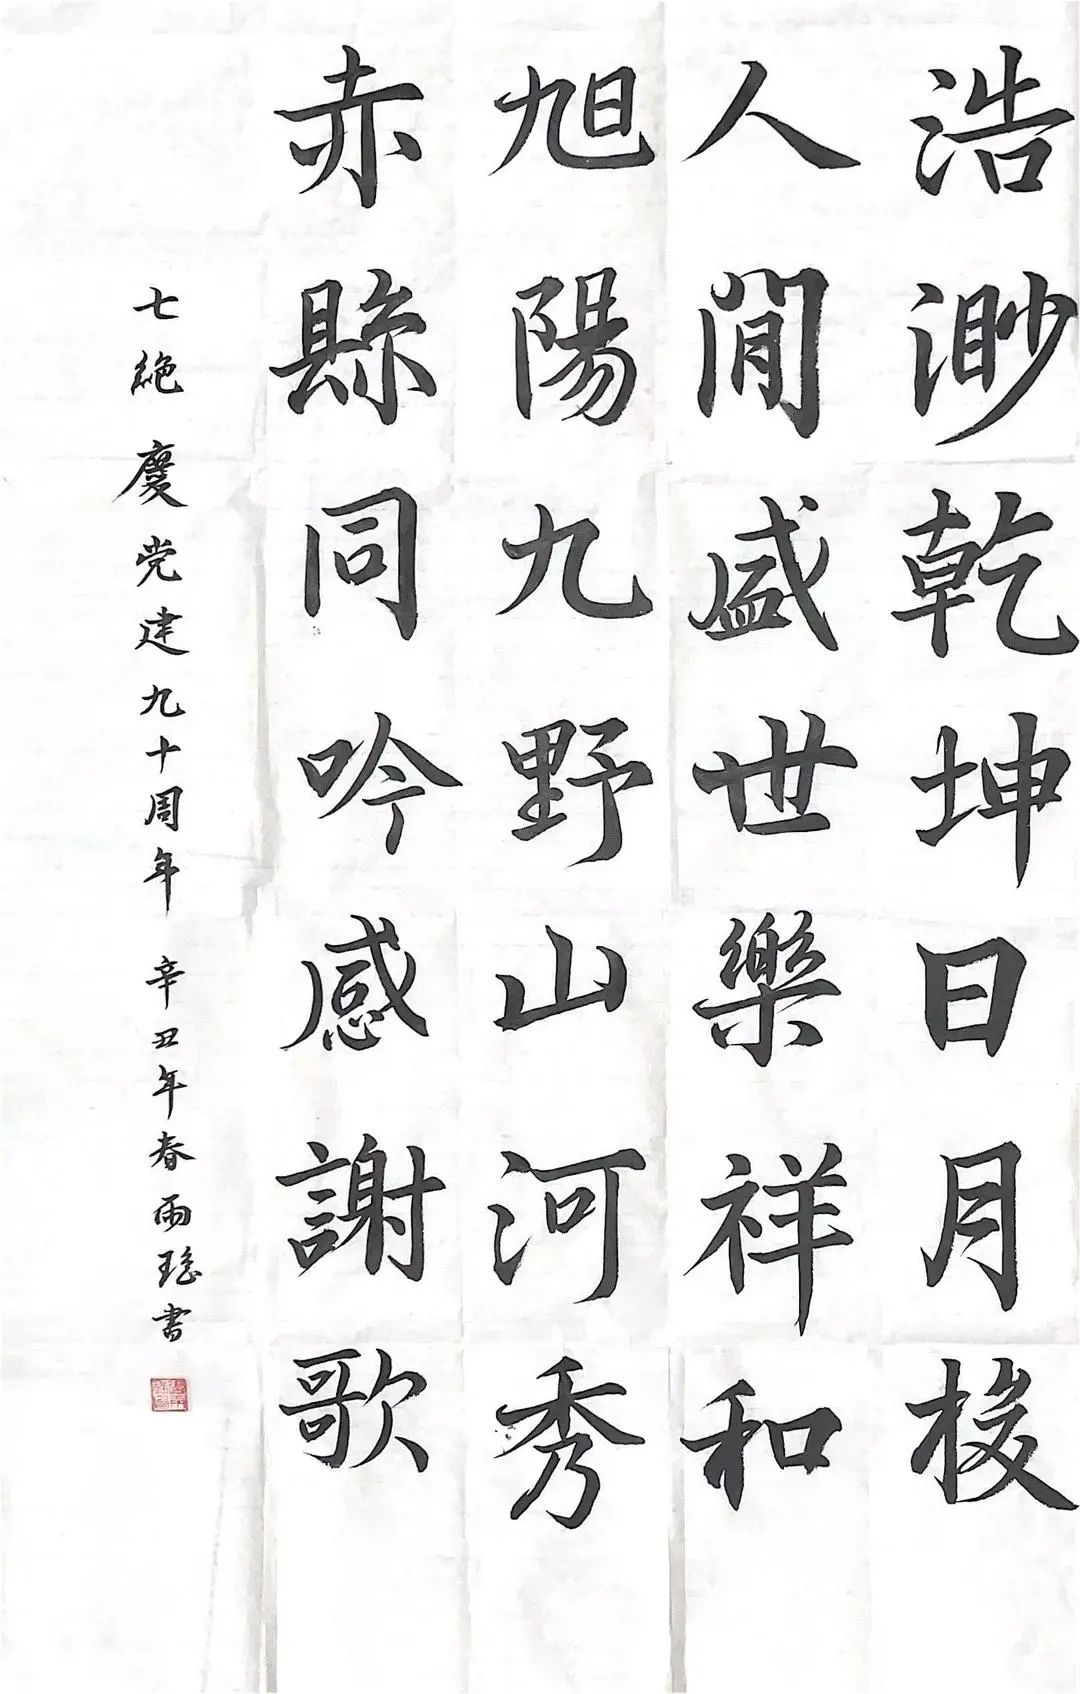 浩渺乾坤日月梭
人間盛世樂祥和
旭陽九野山河秀
赤縣同吟感謝歌
七絶 慶党建九十周年 辛丑年春雨瑶書